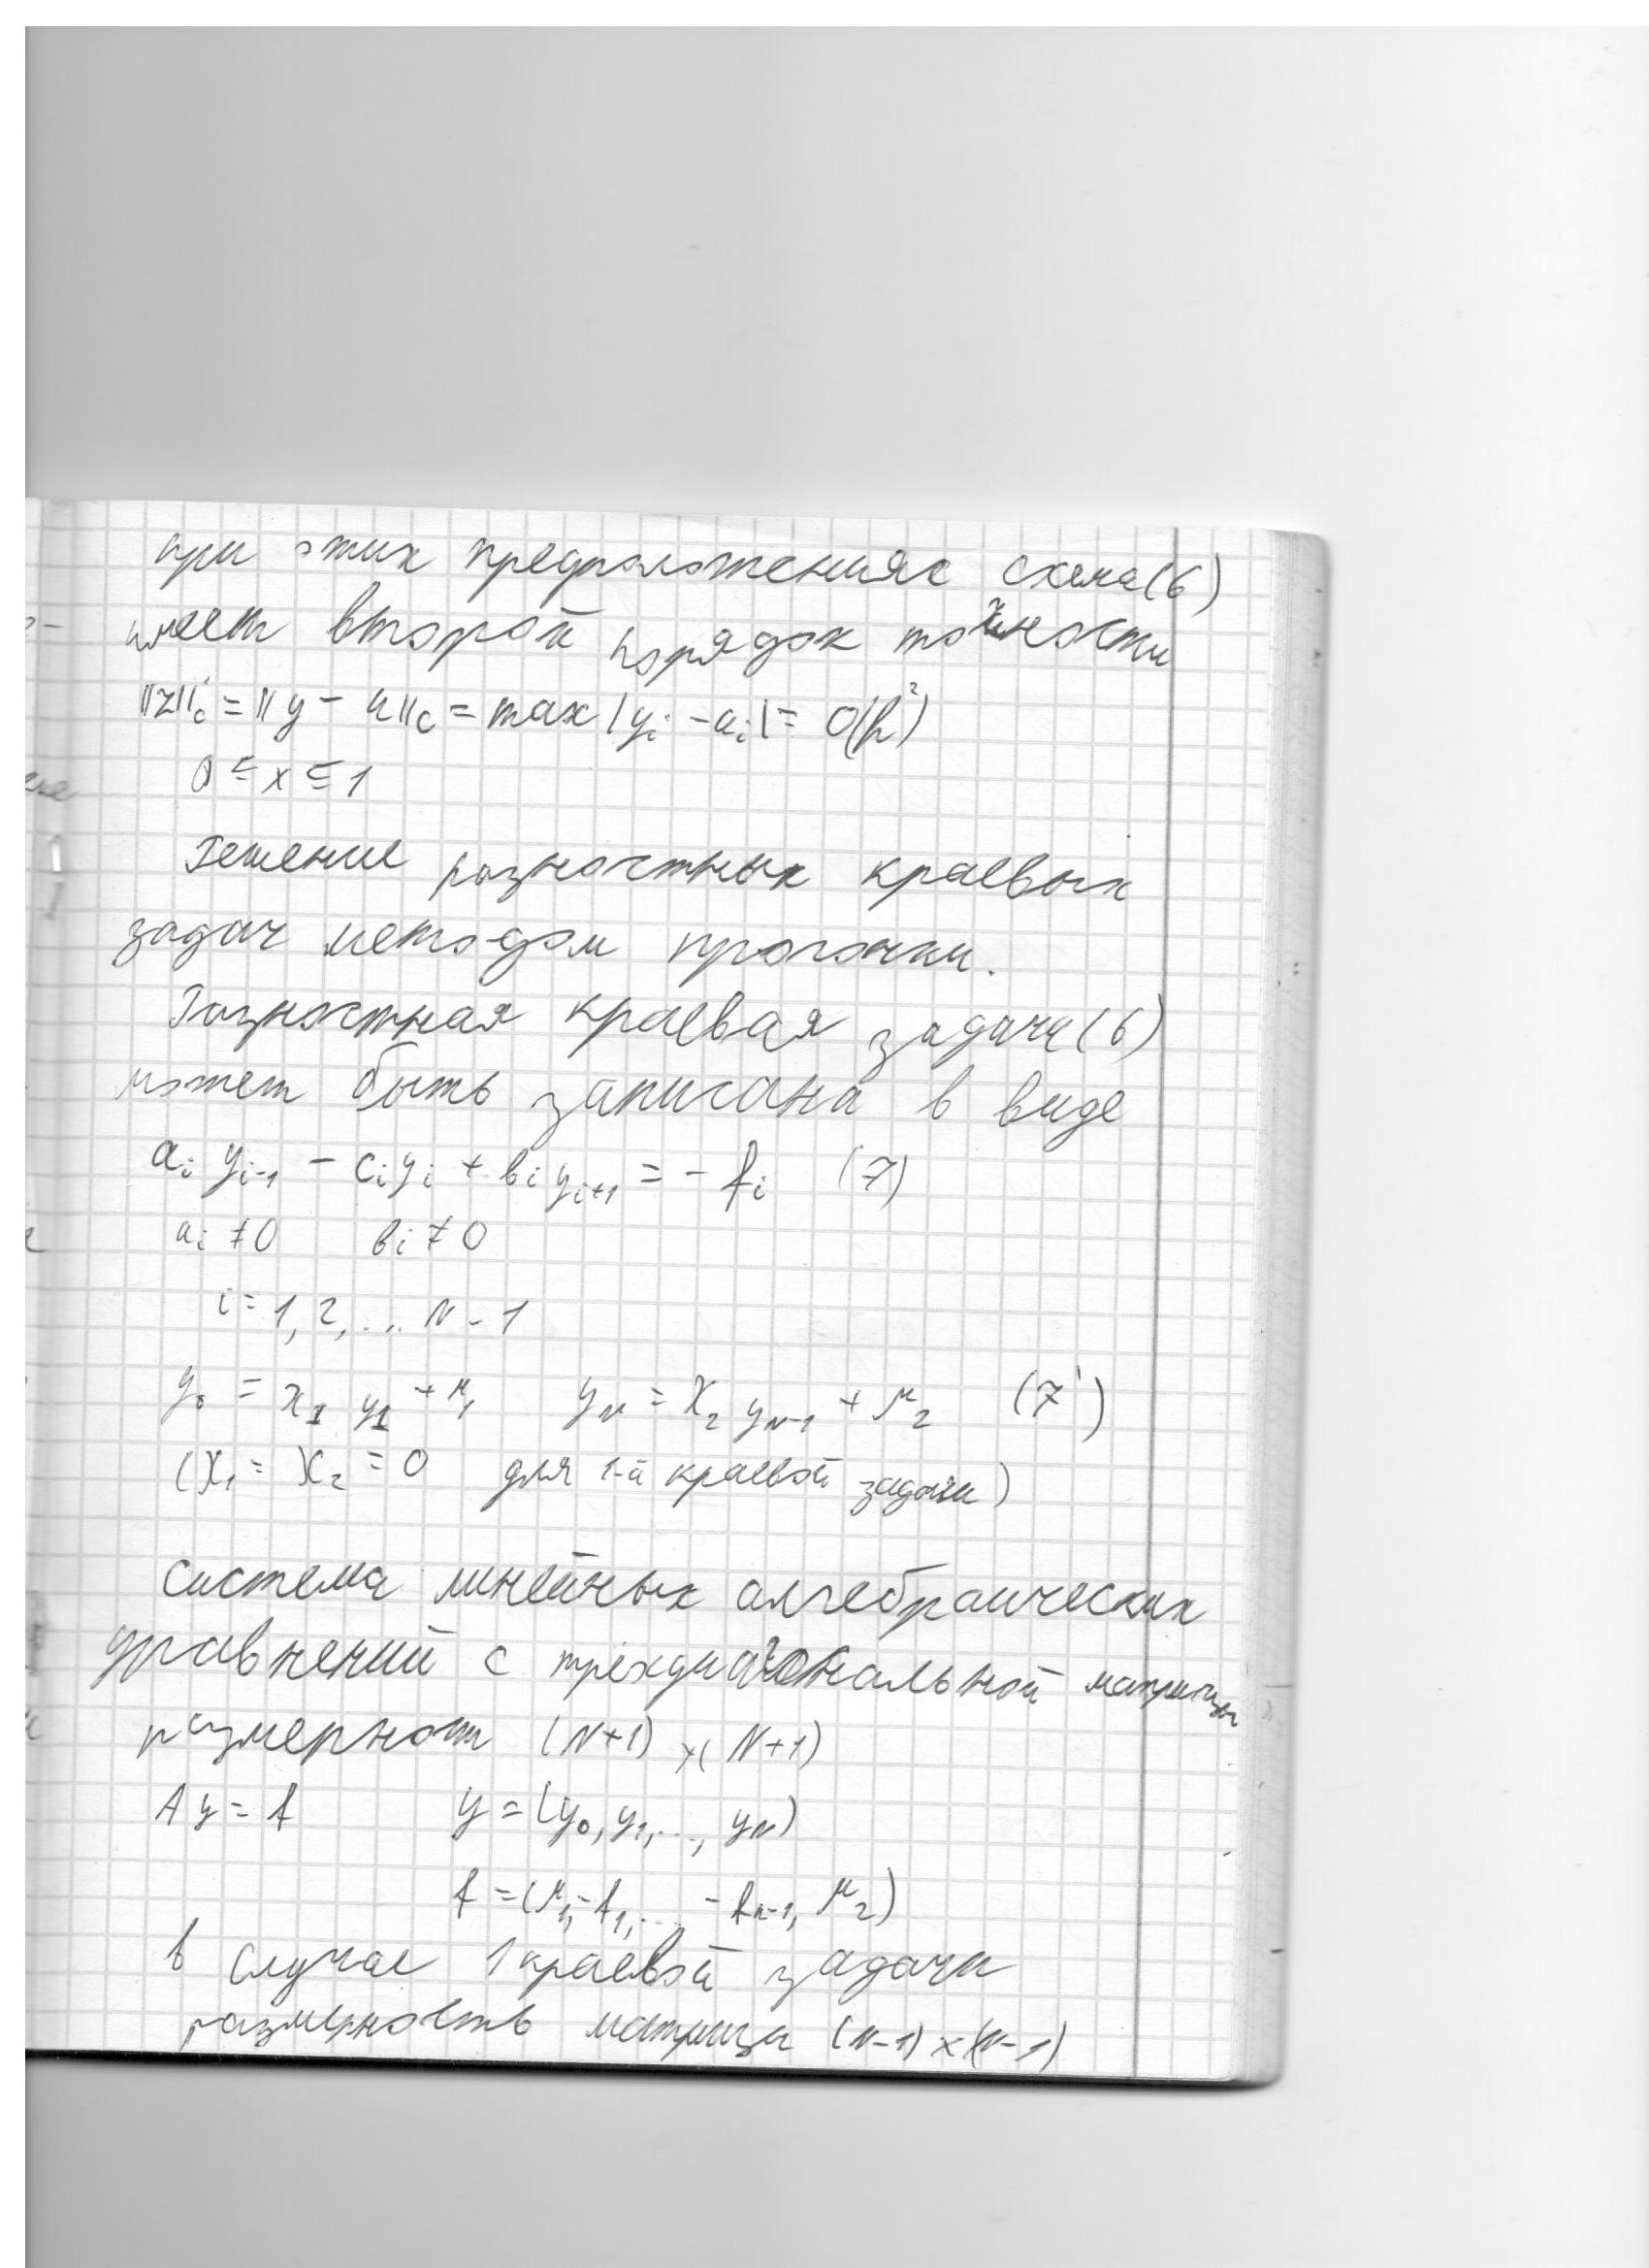 при этих предположениях схема (6)
имеет второй порядок точности
||z||c = ||y - u||c = max |yi - ui| = O(h²)
0 ≤ x ≤ 1
Решение разностных краевых
задач методом прогонки.
Разностная краевая задача (6)
может быть записана в виде
ai yi-1 - ci yi + bi yi+1 = - fi (7)
ai ≠ 0 bi ≠ 0
i = 1, 2, ... N - 1
y0 = χ1 y1 + μ1 yN = χ2 yN-1 + μ2 (7')
(χ1 = χ2 = 0 для 1-й краевой задачи)
Система линейных алгебраических
уравнений с трёхдиагональной матрицы
размерност (N+1) × (N+1)
Ay = f y = (y0, y1, ..., yN)
f = (μ1, -f1, ... -fN-1, μ2)
в случае 1 краевой задачи
размерность матрицы (N-1) × (N-1)